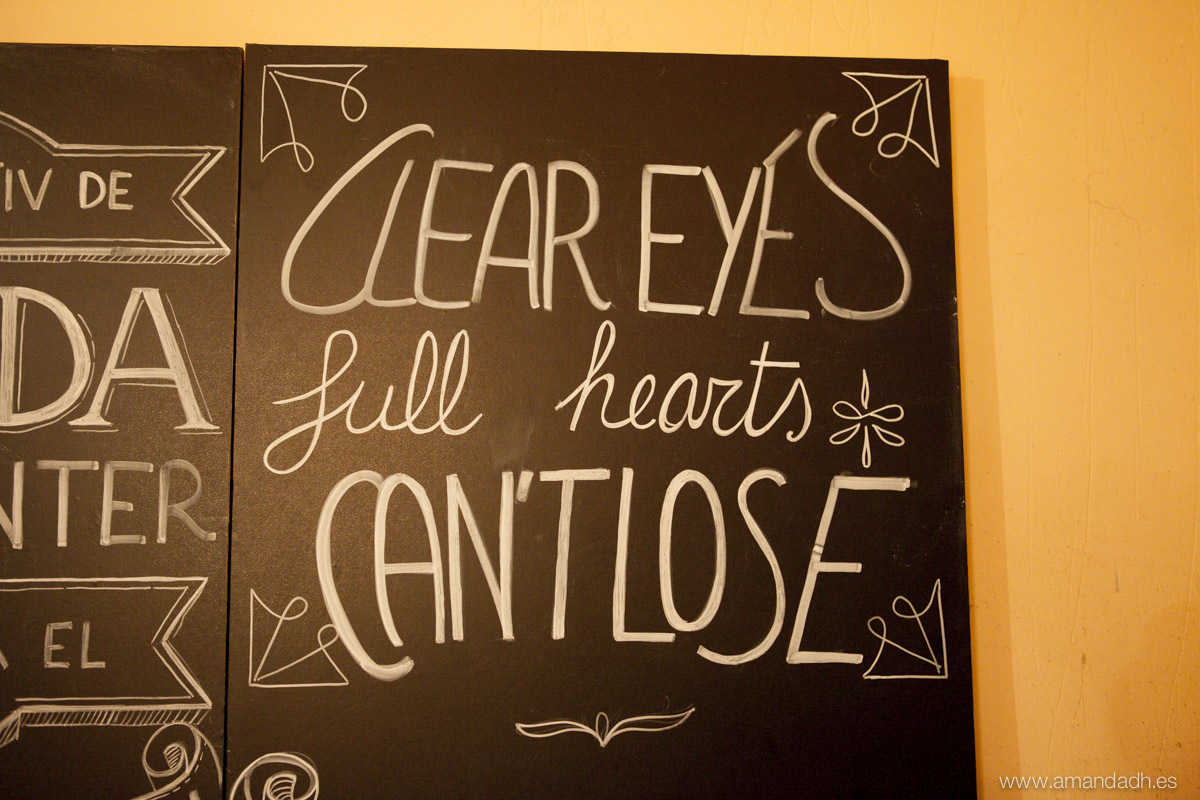 DE
DA
EL
CLEAR EYES
full hearts
CAN'T LOSE
www.amandadh.es